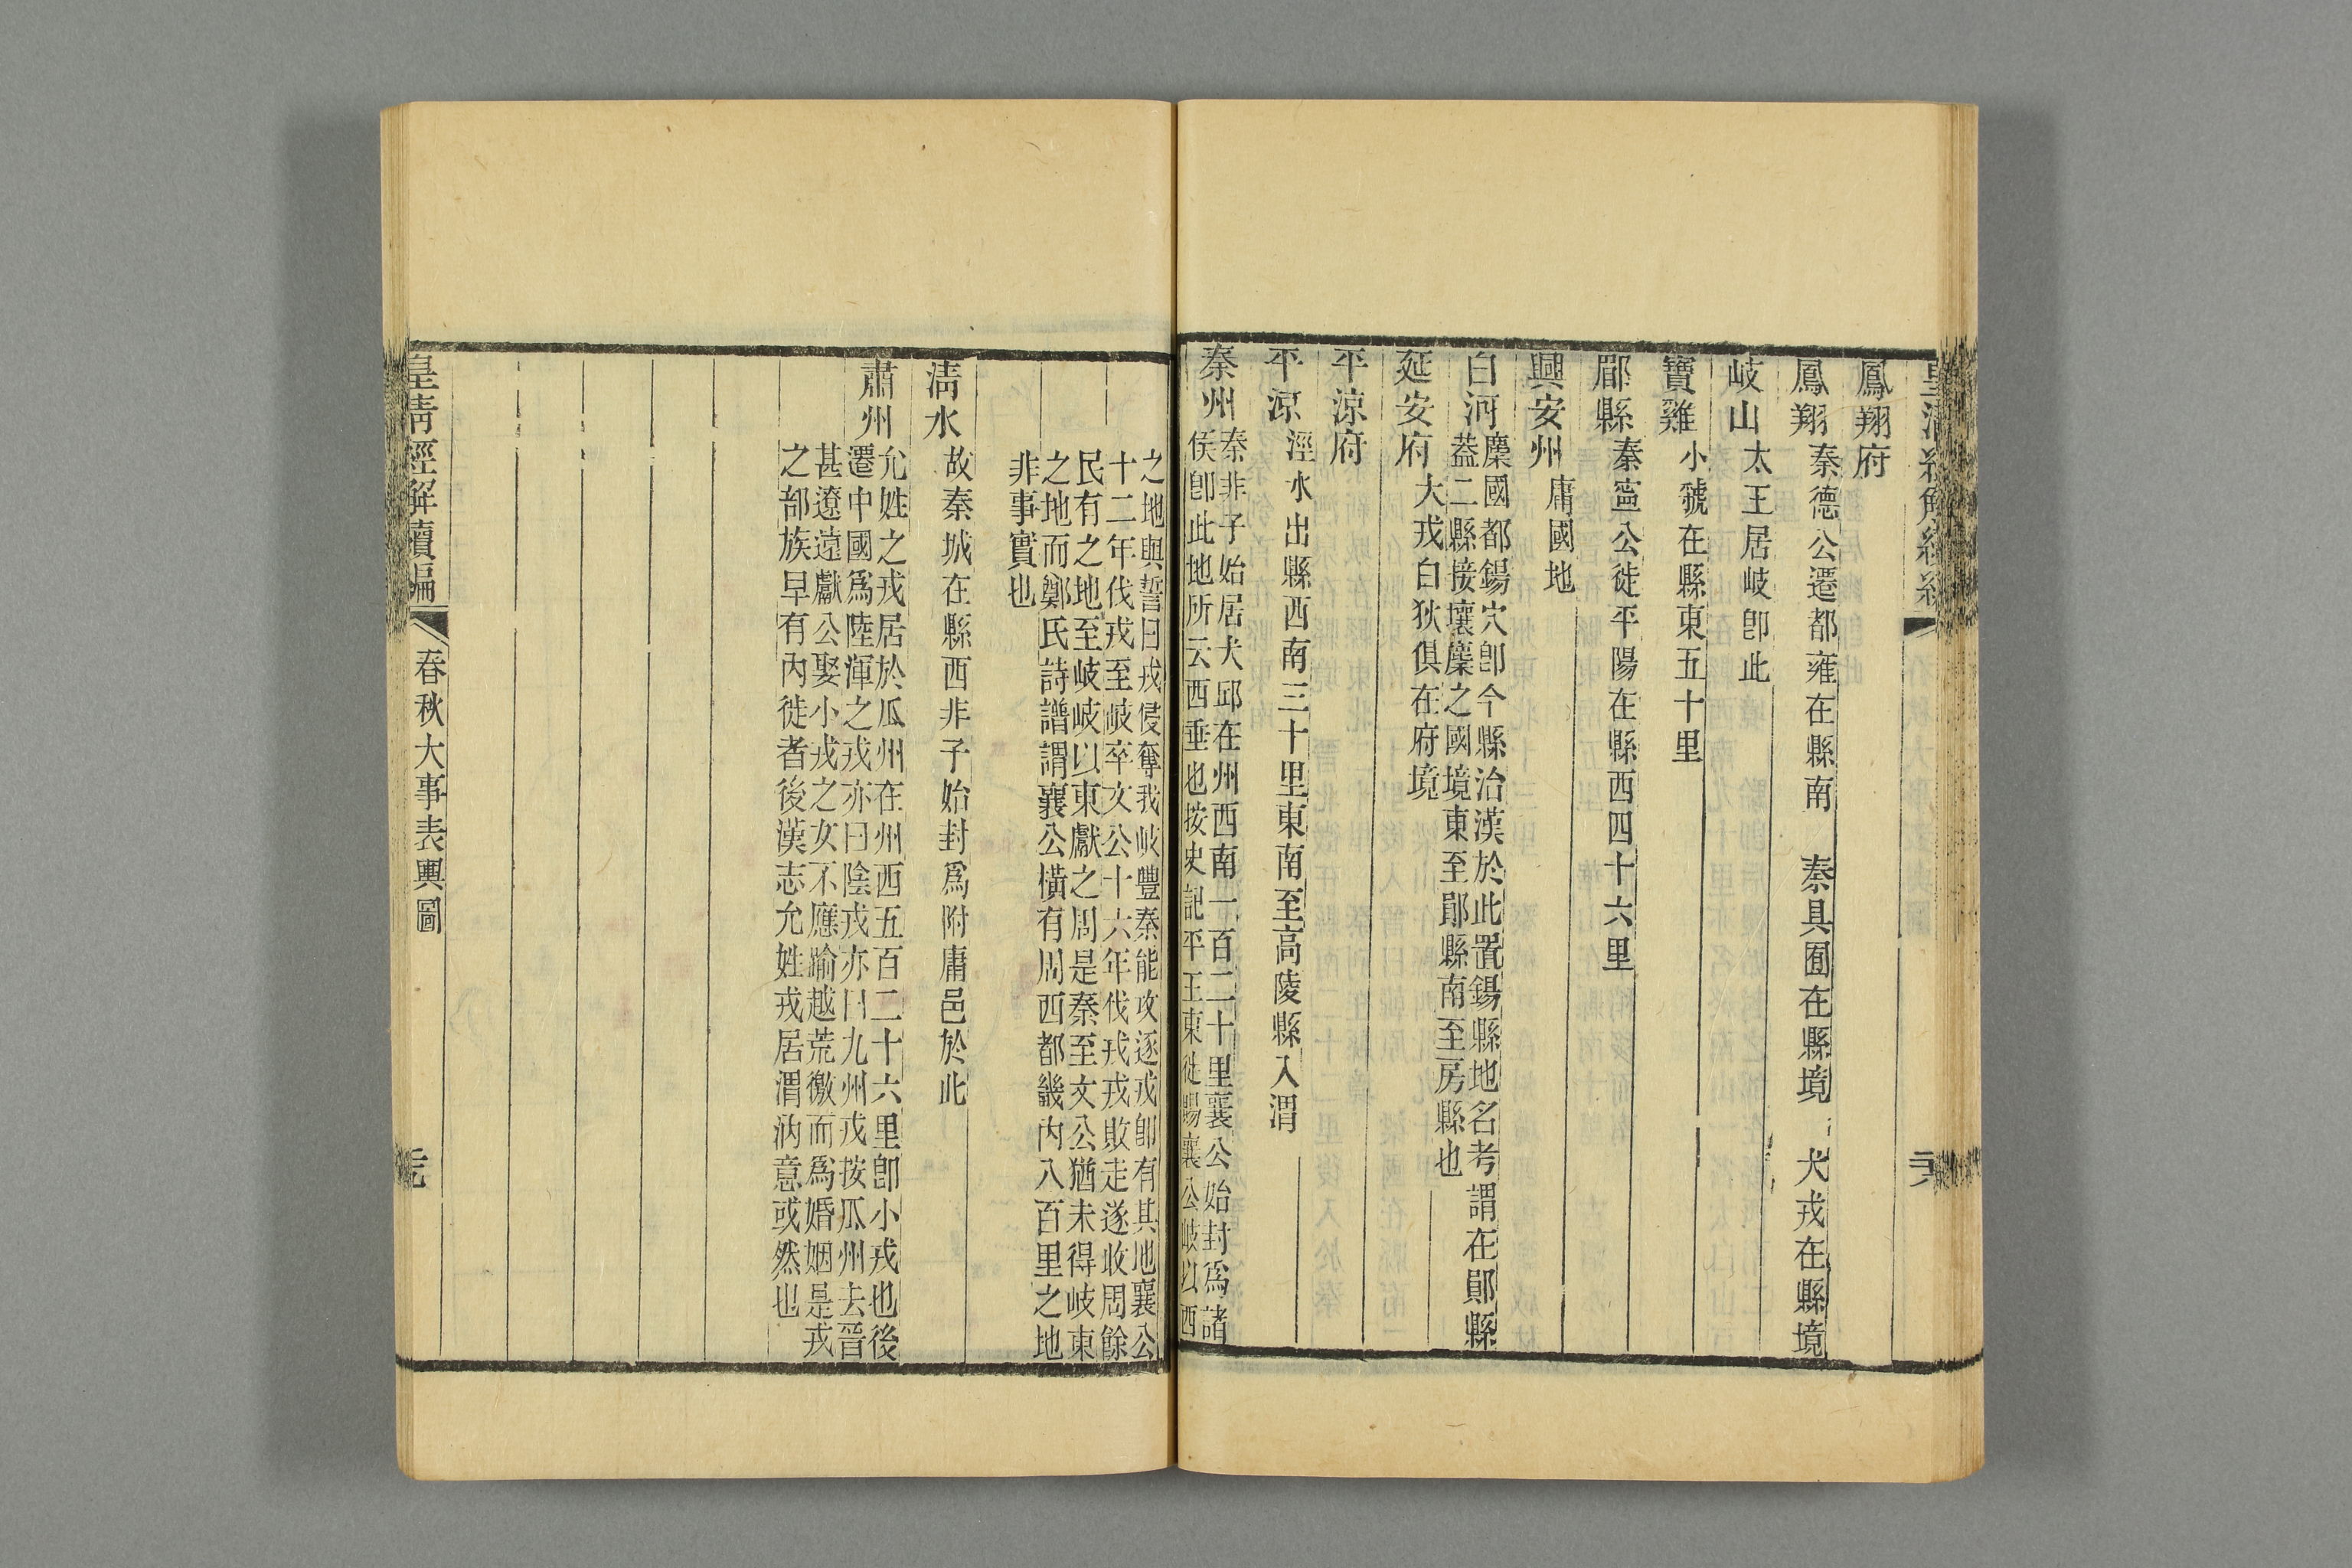 鳳翔府
鳳翔 秦德公遷都雍在縣南 秦具囿在縣境 犬戎在縣境
岐山 太王居岐卽此
寶雞 小虢在縣東五十里
郿縣 秦寧公徙平陽在縣西四十六里
興安州 庸國地
白河 麇國都錫穴卽今縣治漢於此置錫縣地名考謂在鄖縣
葢二縣接壤麇之國境東至鄖縣南至房縣也
延安府 大戎白狄俱在府境
平涼府
平涼 涇水出縣西南三十里東南至高陵縣入渭
秦州 秦非子始居犬邱在州西南一百二十里襄公始封爲諸
侯卽此地所云西垂也按史記平王東徙賜襄公岐以西
之地與誓曰戎侵奪我岐豐秦能攻逐戎卽有其地襄公
十二年伐戎至岐卒文公十六年伐戎戎敗走遂收周餘
民有之地至岐岐以東獻之周是秦至文公猶未得岐東
之地而鄭氏詩譜謂襄公橫有周西都畿內八百里之地
非事實也
淸水 故秦城在縣西非子始封爲附庸邑於此
肅州 允姓之戎居於瓜州在州西五百二十六里卽小戎也後
遷中國爲陸渾之戎亦曰陰戎亦曰九州戎按瓜州去晉
甚遼遠獻公娶小戎之女不應踰越荒徼而爲婚姻是戎
之部族早有內徙者後漢志允姓戎居渭汭意或然也
皇淸經解續編 春秋大事表輿圖